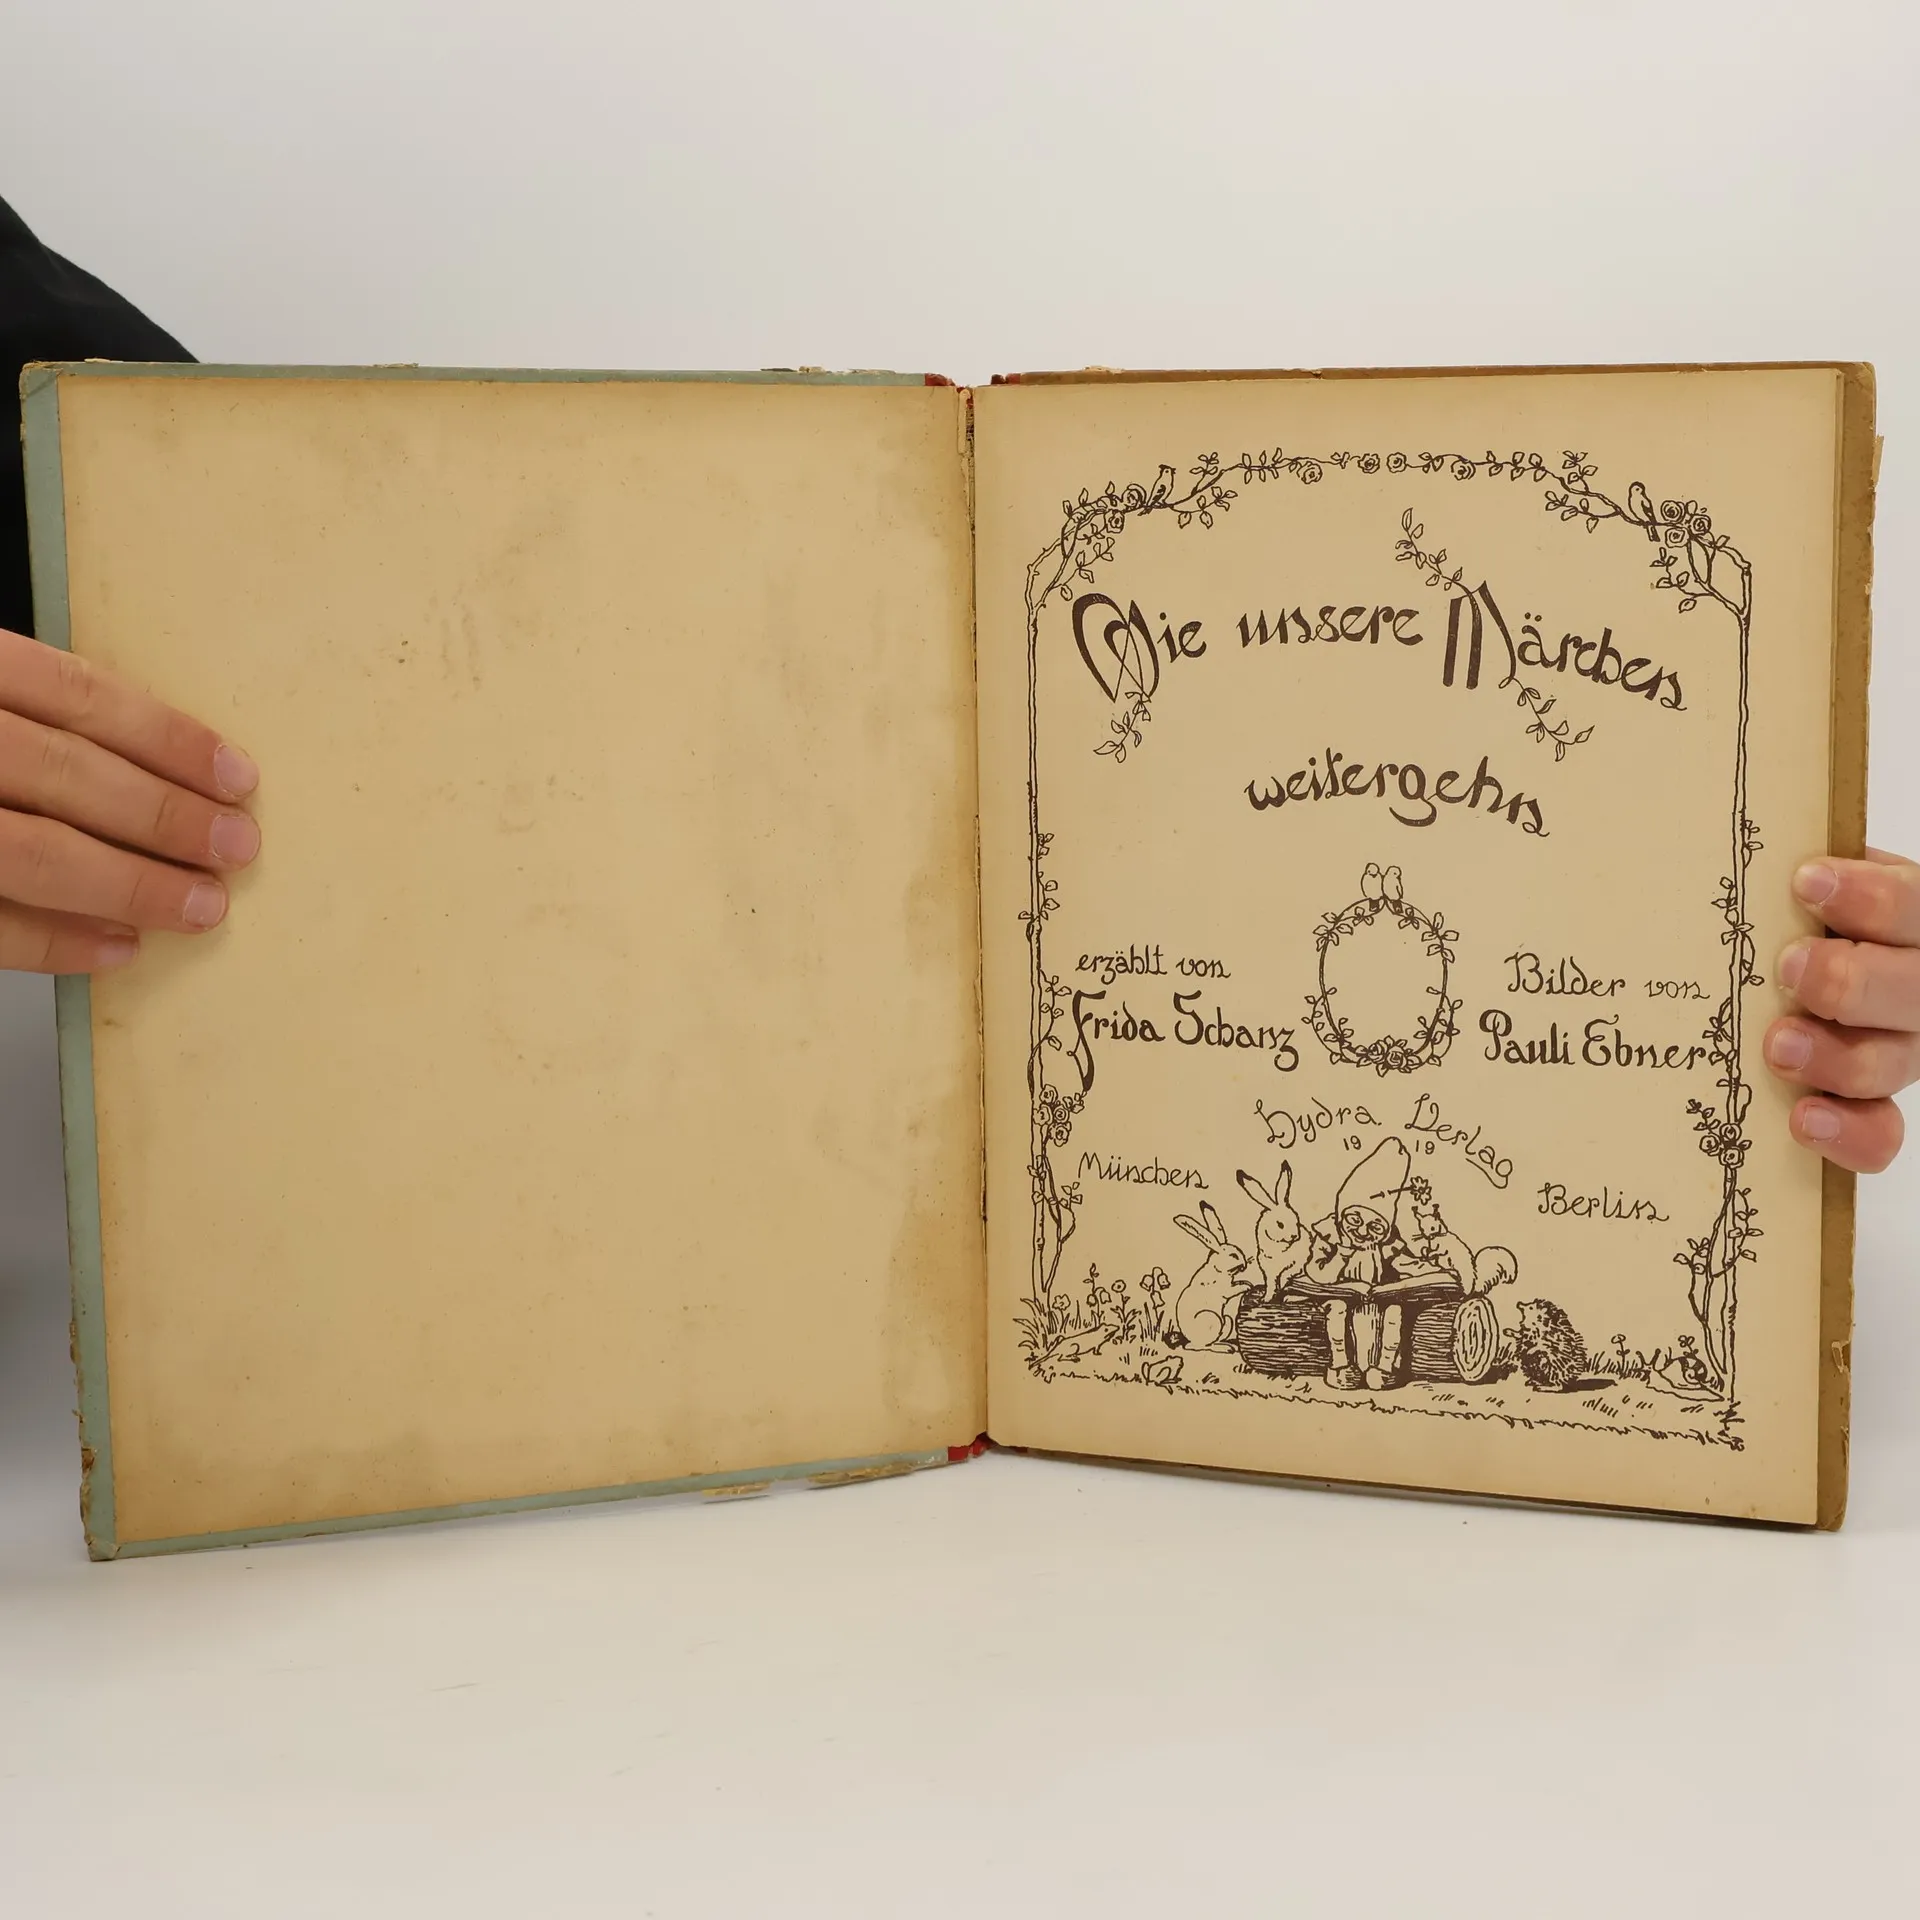 Wie unsere Märchen
weitergehn
erzählt von
Frida Schanz
Bilder von
Pauli Ebner
Hydra Verlag
19 19
München
Berlin